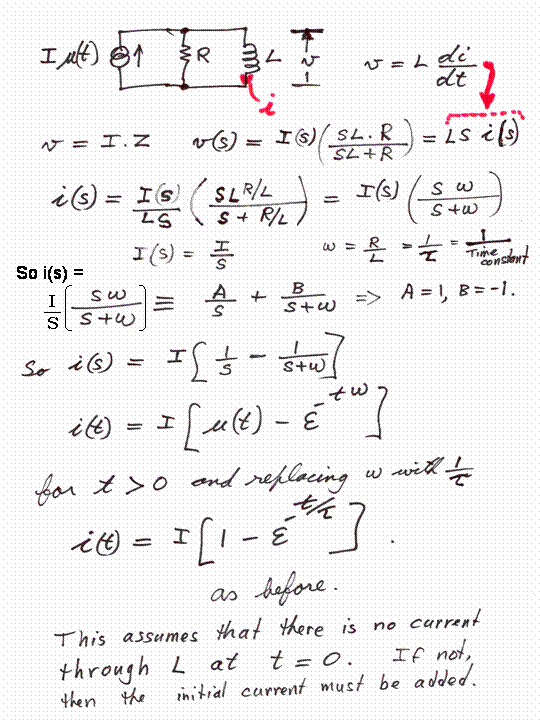 I μ(t) ↑ R L v v = L di/dt
i
v = I.Z v(s) = I(s) ( SL.R / SL+R ) = LS i(s)
i(s) = I(s)/LS ( SL R/L / S + R/L ) = I(s) ( S w / S+w )
I(s) = I/S w = R/L = 1/τ = 1/Time constant
So i(s) =
I/S [ S w / S+w ] ≡ A/S + B/S+w => A = 1, B = -1.
So i(s) = I [ 1/S - 1/S+w ]
i(t) = I [ μ(t) - ε^-tw ]
for t > 0 and replacing w with 1/τ
i(t) = I [ 1 - ε^-t/τ ] .
as before.
This assumes that there is no current
through L at t = 0. If not,
then the initial current must be added.